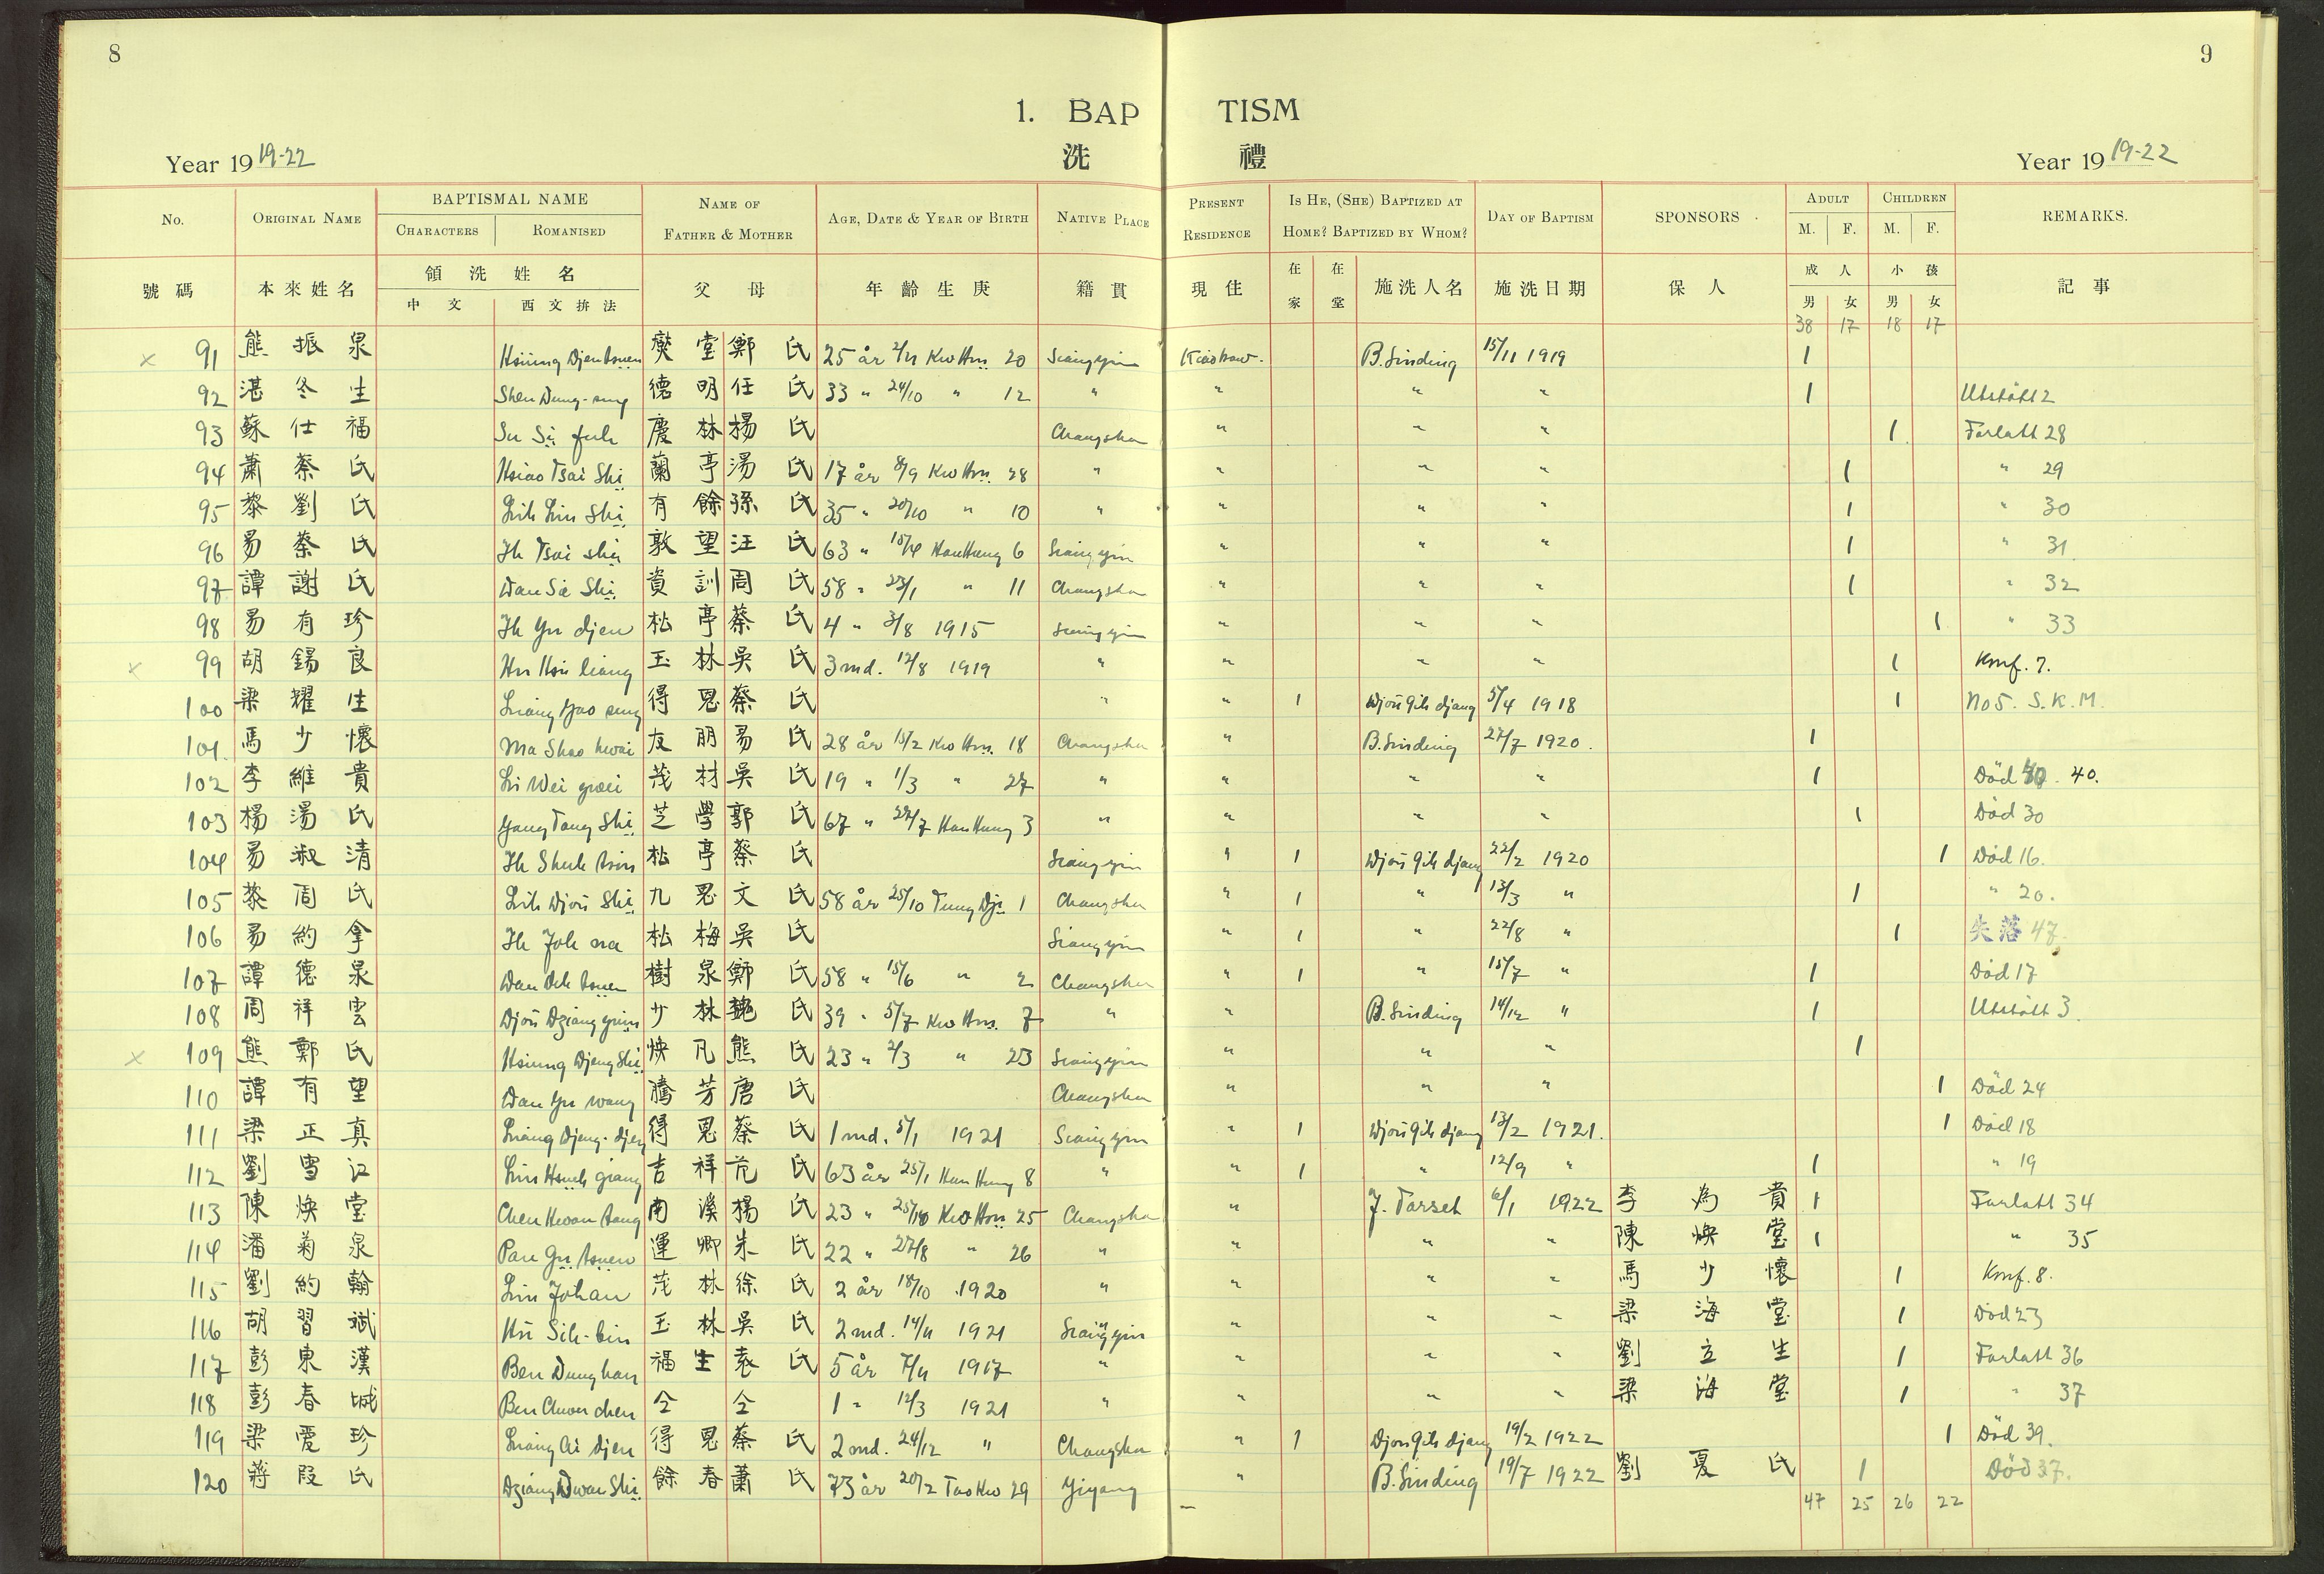 8
9
1. BAP TISM
Year 19 19-22
洗 禮
Year 19 19-22
No. ORIGINAL NAME BAPTISMAL NAME NAME OF FATHER & MOTHER AGE, DATE & YEAR OF BIRTH NATIVE PLACE PRESENT RESIDENCE IS HE, (SHE) BAPTIZED AT HOME? BAPTIZED BY WHOM? DAY OF BAPTISM SPONSORS ADULT CHILDREN REMARKS.
CHARACTERS ROMANISED M. F. M. F.
號碼 本來姓名 領洗姓名 父母 年齡生庚 籍貫 現住 在家 在堂 施洗人名 施洗日期 保人 成人 小孩 記事
中文 西文拚法 男 女 男 女
38 17 18 17
x 91 熊振泉 Hsiung Djen tsuen 堂鄭氏 25 år 2/11 Kwo Hsü 20 Siangyin Kiaotow. B. Sinding 15/11 1919 1
92 湛冬生 Shen Dung-seng 德明任氏 33 " 24/10 " 12 " " " " 1 Utstött 2
93 蘇仕福 Su Si fuh 慶林楊氏 Changsha " " " 1 Forlatt 28
94 蕭蔡氏 Hsiao Tsai Shi 蘭亭湯氏 17 år 8/9 Kwo Hsü 28 " " " " 1 " 29
95 黎劉氏 Lih Liu Shi 有餘孫氏 35 " 20/10 " 10 " " " " 1 " 30
96 易蔡氏 Ih Tsai shi 敦望汪氏 63 " 15/4 Han Hung 6 Siangyin " " " 1 " 31
97 譚謝氏 Dan Sie Shi 資訓周氏 58 " 23/1 " 11 Changsha " " " 1 " 32
98 易有珍 Ih Yu djen 松亭蔡氏 4 " 3/8 1915 Siangyin " " " 1 " 33
x 99 胡錫良 Hu Hsi liang 玉林吳氏 3 md. 12/8 1919 " " " " 1 Konf. 7.
100 梁耀生 Liang Yao seng 得恩蔡氏 " " 1 Djou Gih djang 5/4 1918 1 No 5. S.K.M.
101. 馬少懷 Ma Shao hwai 友朋易氏 28 år 15/2 Kwo Hsü 18 Changsha " B. Sinding 27/7 1920. 1
102 李維貴 Li Wei gwei 茂材吳氏 19 " 1/3 " 27 " " " " 1 Död 40.
103 楊湯氏 Yang Tang Shi 芝學郭氏 67 " 22/7 Han Hung 3 " " " " 1 Död 30
104 易淑清 Ih Shuh tsin 松亭蔡氏 Siangyin " 1 Djou Gih djang 22/2 1920 1 Död 16.
105 黎周氏 Lih Djou Shi 九恩文氏 58 år 25/10 Tung Dji 1 Changsha " 1 " 13/3 " 1 " 20.
106 易約拿 Ih Joh na 松梅吳氏 Siangyin " 1 " 22/8 " 1 失落 47.
107 譚德泉 Dan Deh tsuen 樹泉鄭氏 58 " 15/6 " 2 Changsha " 1 " 15/7 " 1 Död 17
108 周祥雲 Djou Dziang yuin 少林魏氏 39 " 5/7 Kwo Hsü 7 " " B. Sinding 14/12 " 1 Utstött 3.
x 109 熊鄭氏 Hsiung Djeng Shi 煥凡熊氏 23 " 2/3 " 23 Siangyin " " " 1
110 譚有望 Dan Yu wang 騰芳唐氏 Changsha " " " 1 Död 24
111 梁正真 Liang Djeng-djen 得恩蔡氏 1 md. 5/1 1921 Siangyin " 1 Djou Gih djang 13/2 1921. 1 Död 18
112 劉雪江 Liu Hsueh giang 吉祥范氏 63 år 25/1 Han Hung 8 " " 1 " 12/9 " 1 " 19
113 陳煥堂 Chen Hwan tang 南溪楊氏 23 " 25/10 Kwo Hsü 25 Changsha " J. Torset 6/1 1922 李為貴 1 Forlatt 34
114 潘菊泉 Pan Gu tsuen 運卿朱氏 22 " 27/8 " 26 " " " " 陳煥堂 1 " 35
115 劉約翰 Liu Johan 茂林徐氏 2 år 18/10 1920 " " " " 馬少懷 1 Konf. 8.
116 胡習斌 Hu Sih-bin 玉林吳氏 2 md. 14/11 1921 Siangyin " " " 梁海堂 1 Död 23
117 彭東漢 Ben Dung han 福生袁氏 5 år 7/11 1917 " " " " 劉立生 1 Forlatt 36
118 彭春城 Ben Chuen chen 仝仝 1 " 12/3 1921 " " " " 梁海堂 1 " 37
119 梁愛珍 Liang Ai djen 得恩蔡氏 2 md. 24/12 " Changsha " 1 Djou Gih djang 19/2 1922 1 Död 39.
120 蔣段氏 Dziang Dwan Shi 餘春蕭氏 73 år 20/2 Tao Kw 29 Yiyang " B. Sinding 19/7 1922 劉夏氏 1 Död 37.
47 25 26 22